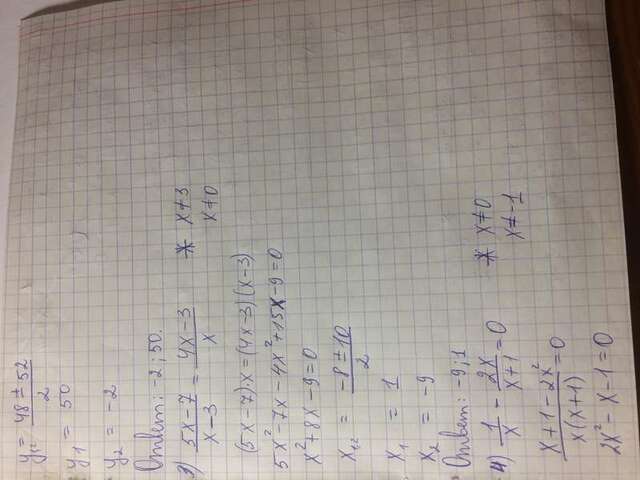 y₁,₂ = (48 ± 52)/2
y₁ = 50
y₂ = -2
Ответ: -2; 50.
3) (5x-7)/(x-3) = (4x-3)/x * x≠3
x≠0
(5x-7)·x=(4x-3)(x-3)
5x²-7x-4x²+15x-9=0
x²+8x-9=0
x₁,₂ = (-8±10)/2
x₁ = 1
x₂ = -9
Ответ: -9; 1
4) 1/x - 2x/(x+1) = 0 * x≠0
x≠-1
(x+1-2x²)/(x(x+1)) = 0
2x²-x-1=0